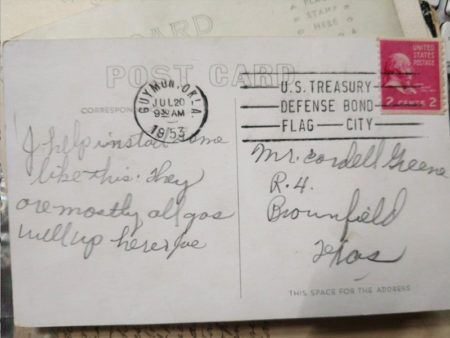 CARD
PLACE
STAMP
HERE
POST CARD
CORRESPON
GUYMON, OKLA.
JUL 20
9 30 AM
1953
U.S. TREASURY
DEFENSE BOND
FLAG CITY
UNITED
STATES
POSTAGE
2 CENTS 2
I help install some
like this. They
are mostly all gas
well up here Joe
Mr. Cordell Greene
R.4.
Brownfield
Texas
THIS SPACE FOR THE ADDRESS